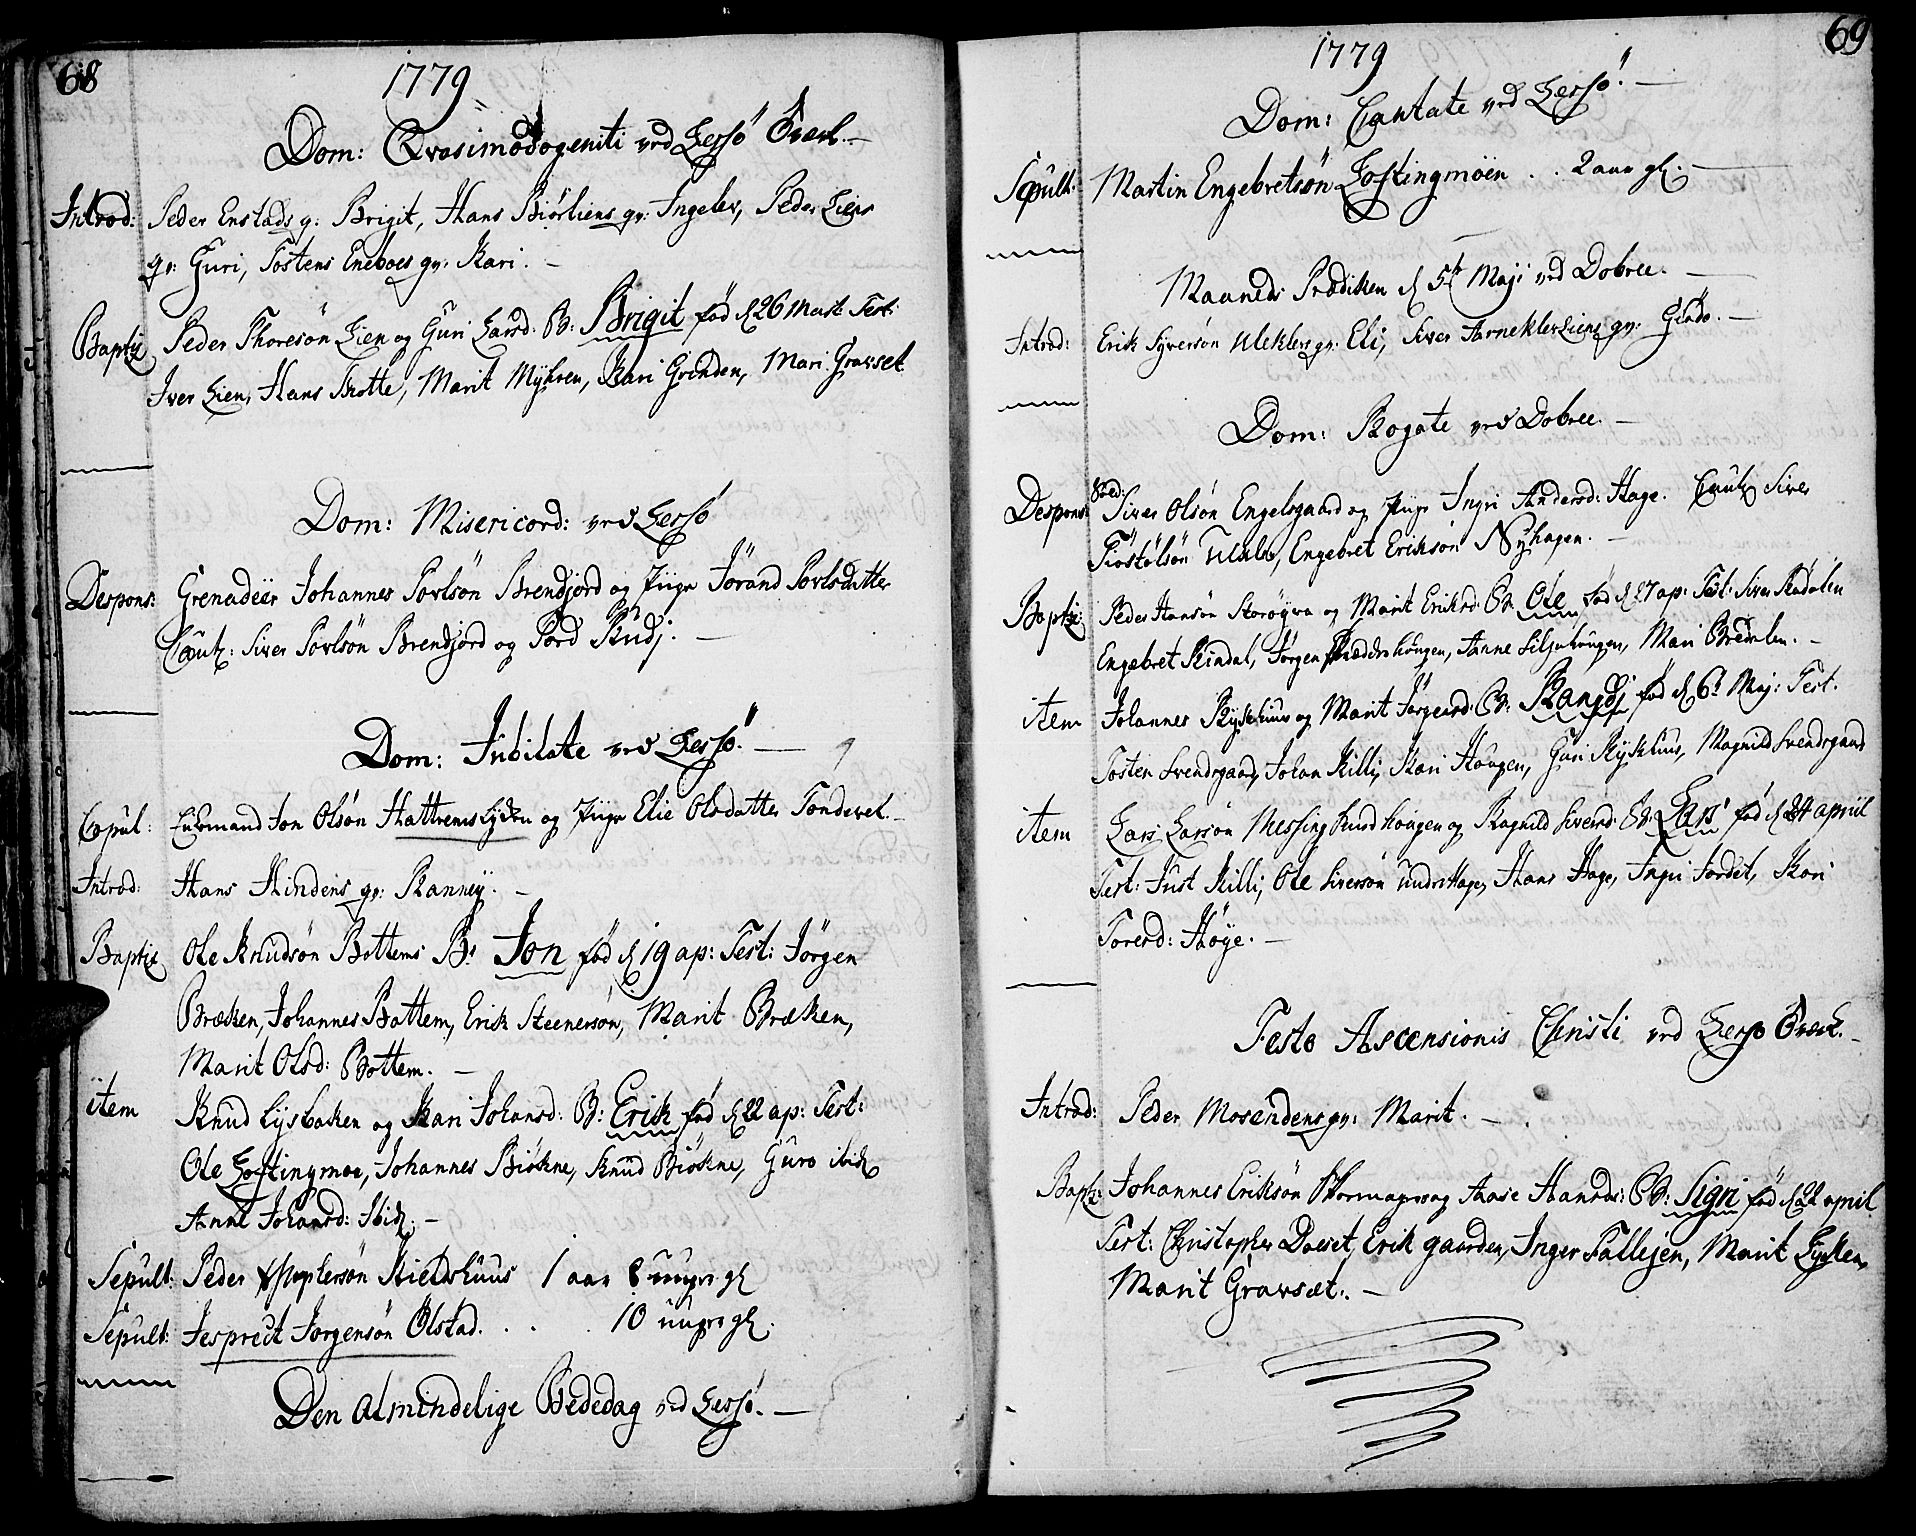 68
1779
Dom: Qvasimodogeniti ved Lessö Överk.
Introd: Peder Enstads q: Brigit, Hans Biörliens qv: Ingeler, Peder Liens
qv: Guri, Tostens Eneboes qv: Kari.
Baptiz Peder Thoresön Lien og Guri Larsd: B: Brigit föd d 26 Mart Test:
Iver Lien, Hans Brotte, Marit Myhren, Kari Grönden, Mari Gravset
Dom: Misericord: ved Lessö
Despons: Grenadeer Johannes Povlsön Brendjord og Piige Jörand Povlsdatter
Caut: Siver Povlsön Brendjord og Pord Rudj.
Dom: Jubilate ved Lessö.
Copul: Enkemand Jon Olsön Hattremslyken og Piige Elie Olsdatter Tondevel.
Introd: Hans Hindens qv: Ranney.
Baptiz Ole Knudsön Bottems B: Jon föd d 19 ap: Test: Jörgen
Bræken, Johannes Bottem, Erik Steenersön, Marit Bræken,
Marit Olsd: Bottem.
item Knud Lysbaken og Kari Johansd: B: Erik föd d 22 ap: Test:
Ole Loftingmoe, Johannes Biökne, Knud Biökne, Guro ibid
Anne Johansd: Ibid.
Sepult: Peder Kieldshuus 1 aar 8 uuger gl
Sepult: Jesprect Jorgensön Ölstad. . . . 10 uuger gl.
Den almindelige Bededag ved Lessö.
69
1779
Dom: Cantate ved Lessö.
Sepult: Martin Engebretsön Loftingmöen . . 2 aar gl.
Maaneds Prædiken d 5te Maji ved Dobree.
Introd: Erik Syversön Uleklev qv: Eli, Siver Liens qv: Giödo.
Dom: Rogate ved Dobree.
Despons: Siver Olsön Engelsgaard og Piige Ingri Andersd: Hage. Caut: Siver
Tiostolsön Ulekl, Engebret Eriksön Nyhagen.
Baptiz: Peder Hansön Storöyra og Marit Eriksd: B: Ole föd d 27 ap: Test: Siver Rödölen
Engebret Rindal, Jörgen Skræddershougen, Anne Siljuhougen, Mari Brednlen.
item Johannes Rykhuus og Marit Jörgensd: B: Rangdj föd d 6t Maj: Test.
Tosten Svendsgaard, Johan Killi, Kari Hougen, Guri Rykhuus, Magnild Svendsgaard
item Lars Larsön Messingknudhougen og Ragnild Siversd: B: Lars föd d 24 april
Test: Just Killi, Ole Siversön Hage, Hans Hage, Ingri Jordet, Kari
Toresd: Höye.
Festo Ascensionis Christi ved Lessö Övrk.
Introd: Peder Mosendens qv: Marit.
Bapt: Johannes Eriksön Skormager og Aase Hansds: B: Sigri föd d 22 april
Test: Christopher Doeset, Erik gaarden, Inger Tallejen, Marit Lyken,
Marit Gravsæt.